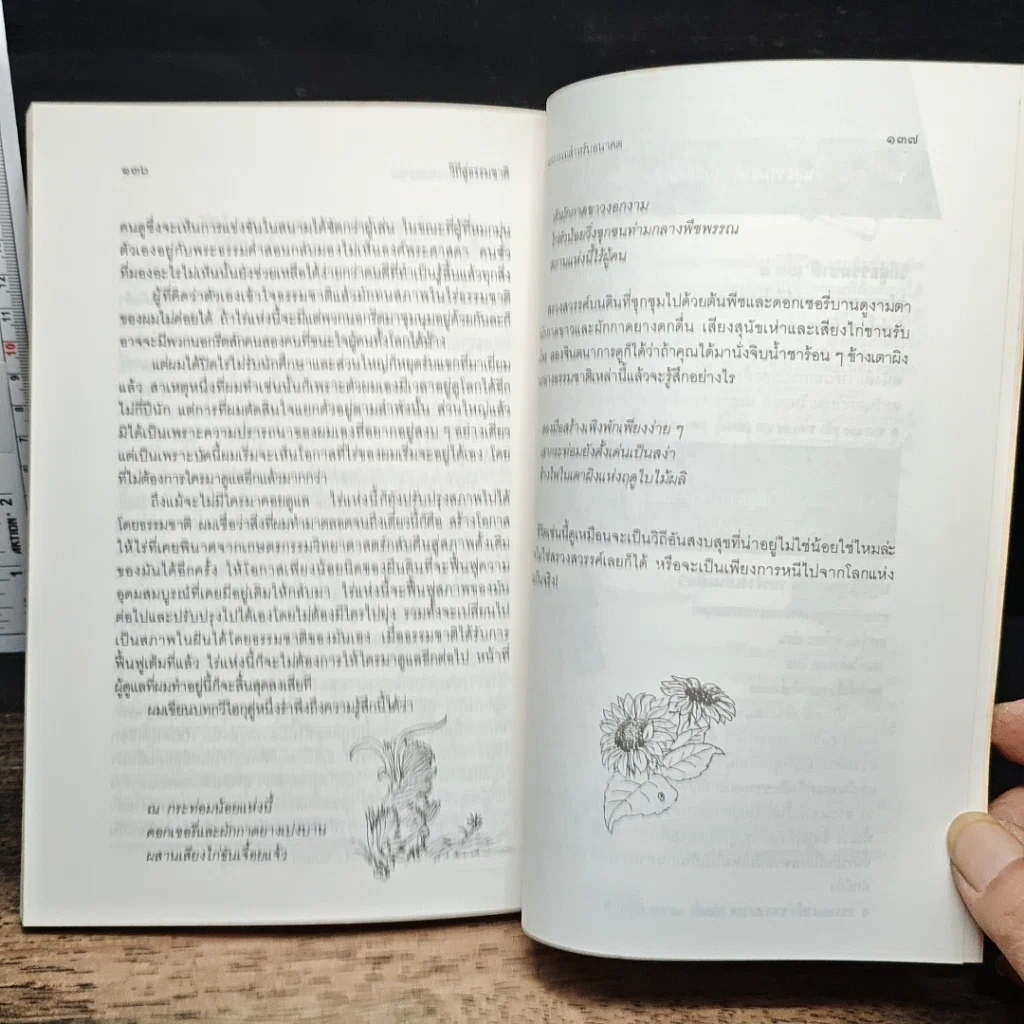 ๑๓๖
วิถีสู่ธรรมชาติ
คนดูซึ่งจะเห็นการแข่งขันในสนามได้ชัดกว่าผู้เล่น ในขณะที่ผู้ที่หมกมุ่น
ตัวเองอยู่กับพระธรรมคำสอนกลับมองไม่เห็นองค์พระศาสดา คนซึ่ง
ที่มองอะไรไม่เห็นนั้นยังช่วยเหลือได้ง่ายกว่าคนดีที่ทำเป็นรู้ตื้นแล้วทุกสิ่ง
ผู้ที่คิดว่าตัวเองเข้าใจธรรมชาติแล้วมักทนสภาพในไร่ธรรมชาติ
ของผมไม่ค่อยได้ ถ้าไร่แห่งนี้จะมีแต่พวกนอกรีตมาชุมนุมอยู่ด้วยกันละก็
อาจจะมีพวกนอกรีตสักคนสองคนที่ชนะใจผู้คนทั้งโลกได้บ้าง
แต่ผมได้ปิดไร่ไม่รับนักศึกษาและส่วนใหญ่ก็หยุดรับแขกที่มาเยี่ยม
แล้ว สาเหตุหนึ่งที่ผมทำเช่นนั้นก็เพราะตัวผมเองมีเวลาอยู่ดูโลกได้อีก
ไม่กี่ปีนัก แต่การที่ผมตัดสินใจแยกตัวอยู่ตามลำพังนั้น ส่วนใหญ่แล้ว
มิได้เป็นเพราะความปรารถนาของผมเองที่อยากอยู่สงบ ๆ อย่างเดียว
แต่เป็นเพราะบัดนี้ผมเริ่มจะเห็นโอกาสที่ไร่ของผมเริ่มจะอยู่ได้เอง โดย
ที่ไม่ต้องการใครมาดูแลอีกแล้วมากกว่า
ถึงแม้จะไม่มีใครมาคอยดูแล ไร่แห่งนี้ก็ยังปรับปรุงสภาพไปได้
โดยธรรมชาติ ผมเชื่อว่าสิ่งที่ผมทำมาตลอดจนถึงเดี๋ยวนี้ก็คือ สร้างโอกาส
ให้ไร่ที่เคยพินาศจากเกษตรกรรมวิทยาศาสตร์กลับคืนสู่สภาพดั้งเดิม
ของมันได้อีกครั้ง ให้โอกาสเสียงน้อยนิดของผืนดินที่จะฟื้นฟูความ
อุดมสมบูรณ์ที่เคยมีอยู่เดิมให้กลับมา ไร่แห่งนี้จะฟื้นฟูสภาพของมัน
ต่อไปและปรับปรุงไปได้เองโดยไม่ต้องมีใครไปยุ่ง รวมทั้งจะเปลี่ยนไป
เป็นสภาพในฝันได้โดยธรรมชาติของมันเอง เมื่อธรรมชาติได้รับการ
ฟื้นฟูเต็มที่แล้ว ไร่แห่งนี้ก็จะไม่ต้องการให้ใครมาดูแลอีกต่อไป หน้าที่
ผู้ดูแลที่ผมทำอยู่นี้ก็จะสิ้นสุดลงเสียที
ผมเขียนบทกวีไฮกุคู่หนึ่งรำลึกถึงความรู้สึกนี้ได้ว่า
ณ กระท่อมน้อยแห่งนี้
ดอกเชอรี่และผักกาดยางเบ่งบาน
ผสานเสียงไก่ขันเจื้อยแจ้ว
กรรมสำหรับอนาคต
๑๓๗
หัวผักกาดขาวงอกงาม
ไก่ตัวน้อยวิ่งซุกซนท่ามกลางพืชพรรณ
สถานแห่งนี้ไร้ผู้คน
สรวงสวรรค์บนดินที่ชุกชุมไปด้วยต้นพืชและดอกเชอรี่บานดูงามตา
ผักกาดขาวและผักกาดยางดกดื่น เสียงสุนัขเห่าและเสียงไก่ขานรับ
ลองจินตนาการดูก็ได้ว่าถ้าคุณได้มานั่งจิบน้ำชาร้อน ๆ ข้างเตาผิง
กลางธรรมชาติเหล่านี้แล้วจะรู้สึกอย่างไร
สองมือสร้างเพิงพักเพียงง่าย ๆ
เสากระท่อมยังตั้งเด่นเป็นสง่า
ข้างไฟในเตาผิงแห่งฤดูใบไม้ผลิ
ชีวิตเช่นนี้ดูเหมือนจะเป็นวิถีอันสงบสุขที่น่าอยู่ไม่ใช่น้อยใช่ไหมล่ะ
ใช่สรวงสวรรค์เลยก็ได้ หรือจะเป็นเพียงการหนีไปจากโลกแห่ง